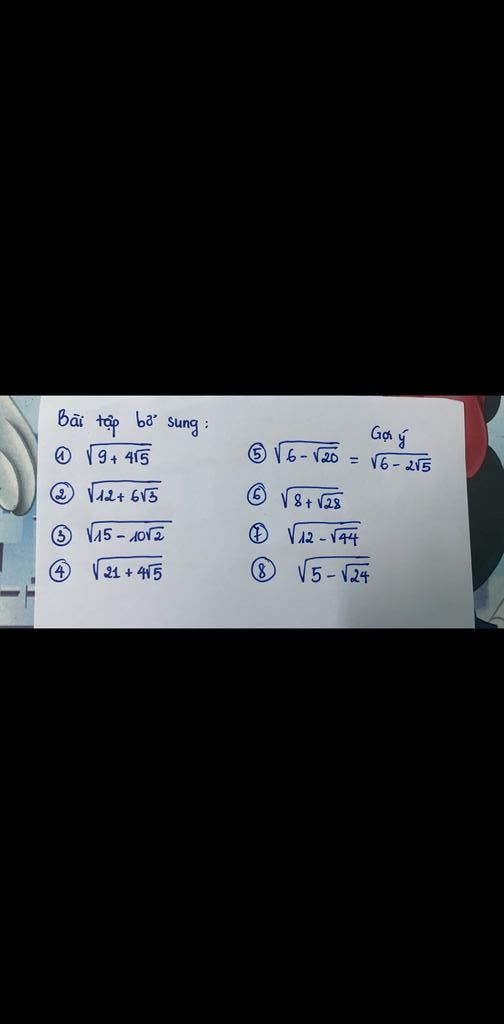 Bài tập bổ sung:
① √(9 + 4√5)
② √(12 + 6√3)
③ √(15 − 10√2)
④ √(21 + 4√5)
Gợi ý
⑤ √(6 − √20) = √(6 − 2√5)
⑥ √(8 + √28)
⑦ √(12 − √44)
⑧ √(5 − √24)